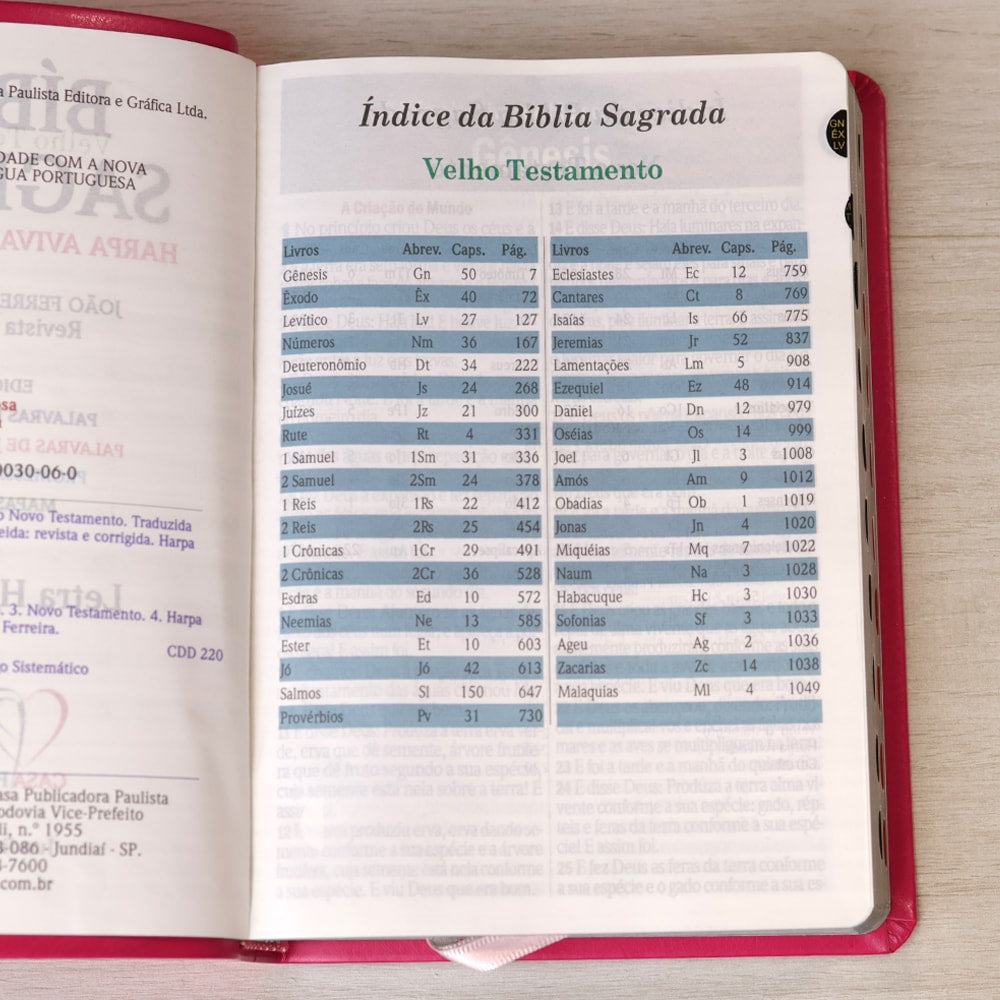 a Paulista Editora e Gráfica Ltda.
DADE COM A NOVA
GUA PORTUGUESA
0030-06-0
o Novo Testamento. Traduzida
eida: revista e corrigida. Harpa
. 3. Novo Testamento. 4. Harpa
Ferreira.
CDD 220
o Sistemático
asa Publicadora Paulista
odovia Vice-Prefeito
li, n.º 1955
8-086 - Jundiaí - SP.
3-7600
.com.br
Índice da Bíblia Sagrada
Velho Testamento
Livros Abrev. Caps. Pág.
Gênesis Gn 50 7
Êxodo Êx 40 72
Levítico Lv 27 127
Números Nm 36 167
Deuteronômio Dt 34 222
Josué Js 24 268
Juízes Jz 21 300
Rute Rt 4 331
1 Samuel 1Sm 31 336
2 Samuel 2Sm 24 378
1 Reis 1Rs 22 412
2 Reis 2Rs 25 454
1 Crônicas 1Cr 29 491
2 Crônicas 2Cr 36 528
Esdras Ed 10 572
Neemias Ne 13 585
Ester Et 10 603
Jó Jó 42 613
Salmos Sl 150 647
Provérbios Pv 31 730
Livros Abrev. Caps. Pág.
Eclesiastes Ec 12 759
Cantares Ct 8 769
Isaías Is 66 775
Jeremias Jr 52 837
Lamentações Lm 5 908
Ezequiel Ez 48 914
Daniel Dn 12 979
Oséias Os 14 999
Joel Jl 3 1008
Amós Am 9 1012
Obadias Ob 1 1019
Jonas Jn 4 1020
Miquéias Mq 7 1022
Naum Na 3 1028
Habacuque Hc 3 1030
Sofonias Sf 3 1033
Ageu Ag 2 1036
Zacarias Zc 14 1038
Malaquias Ml 4 1049
GN
ÊX
LV